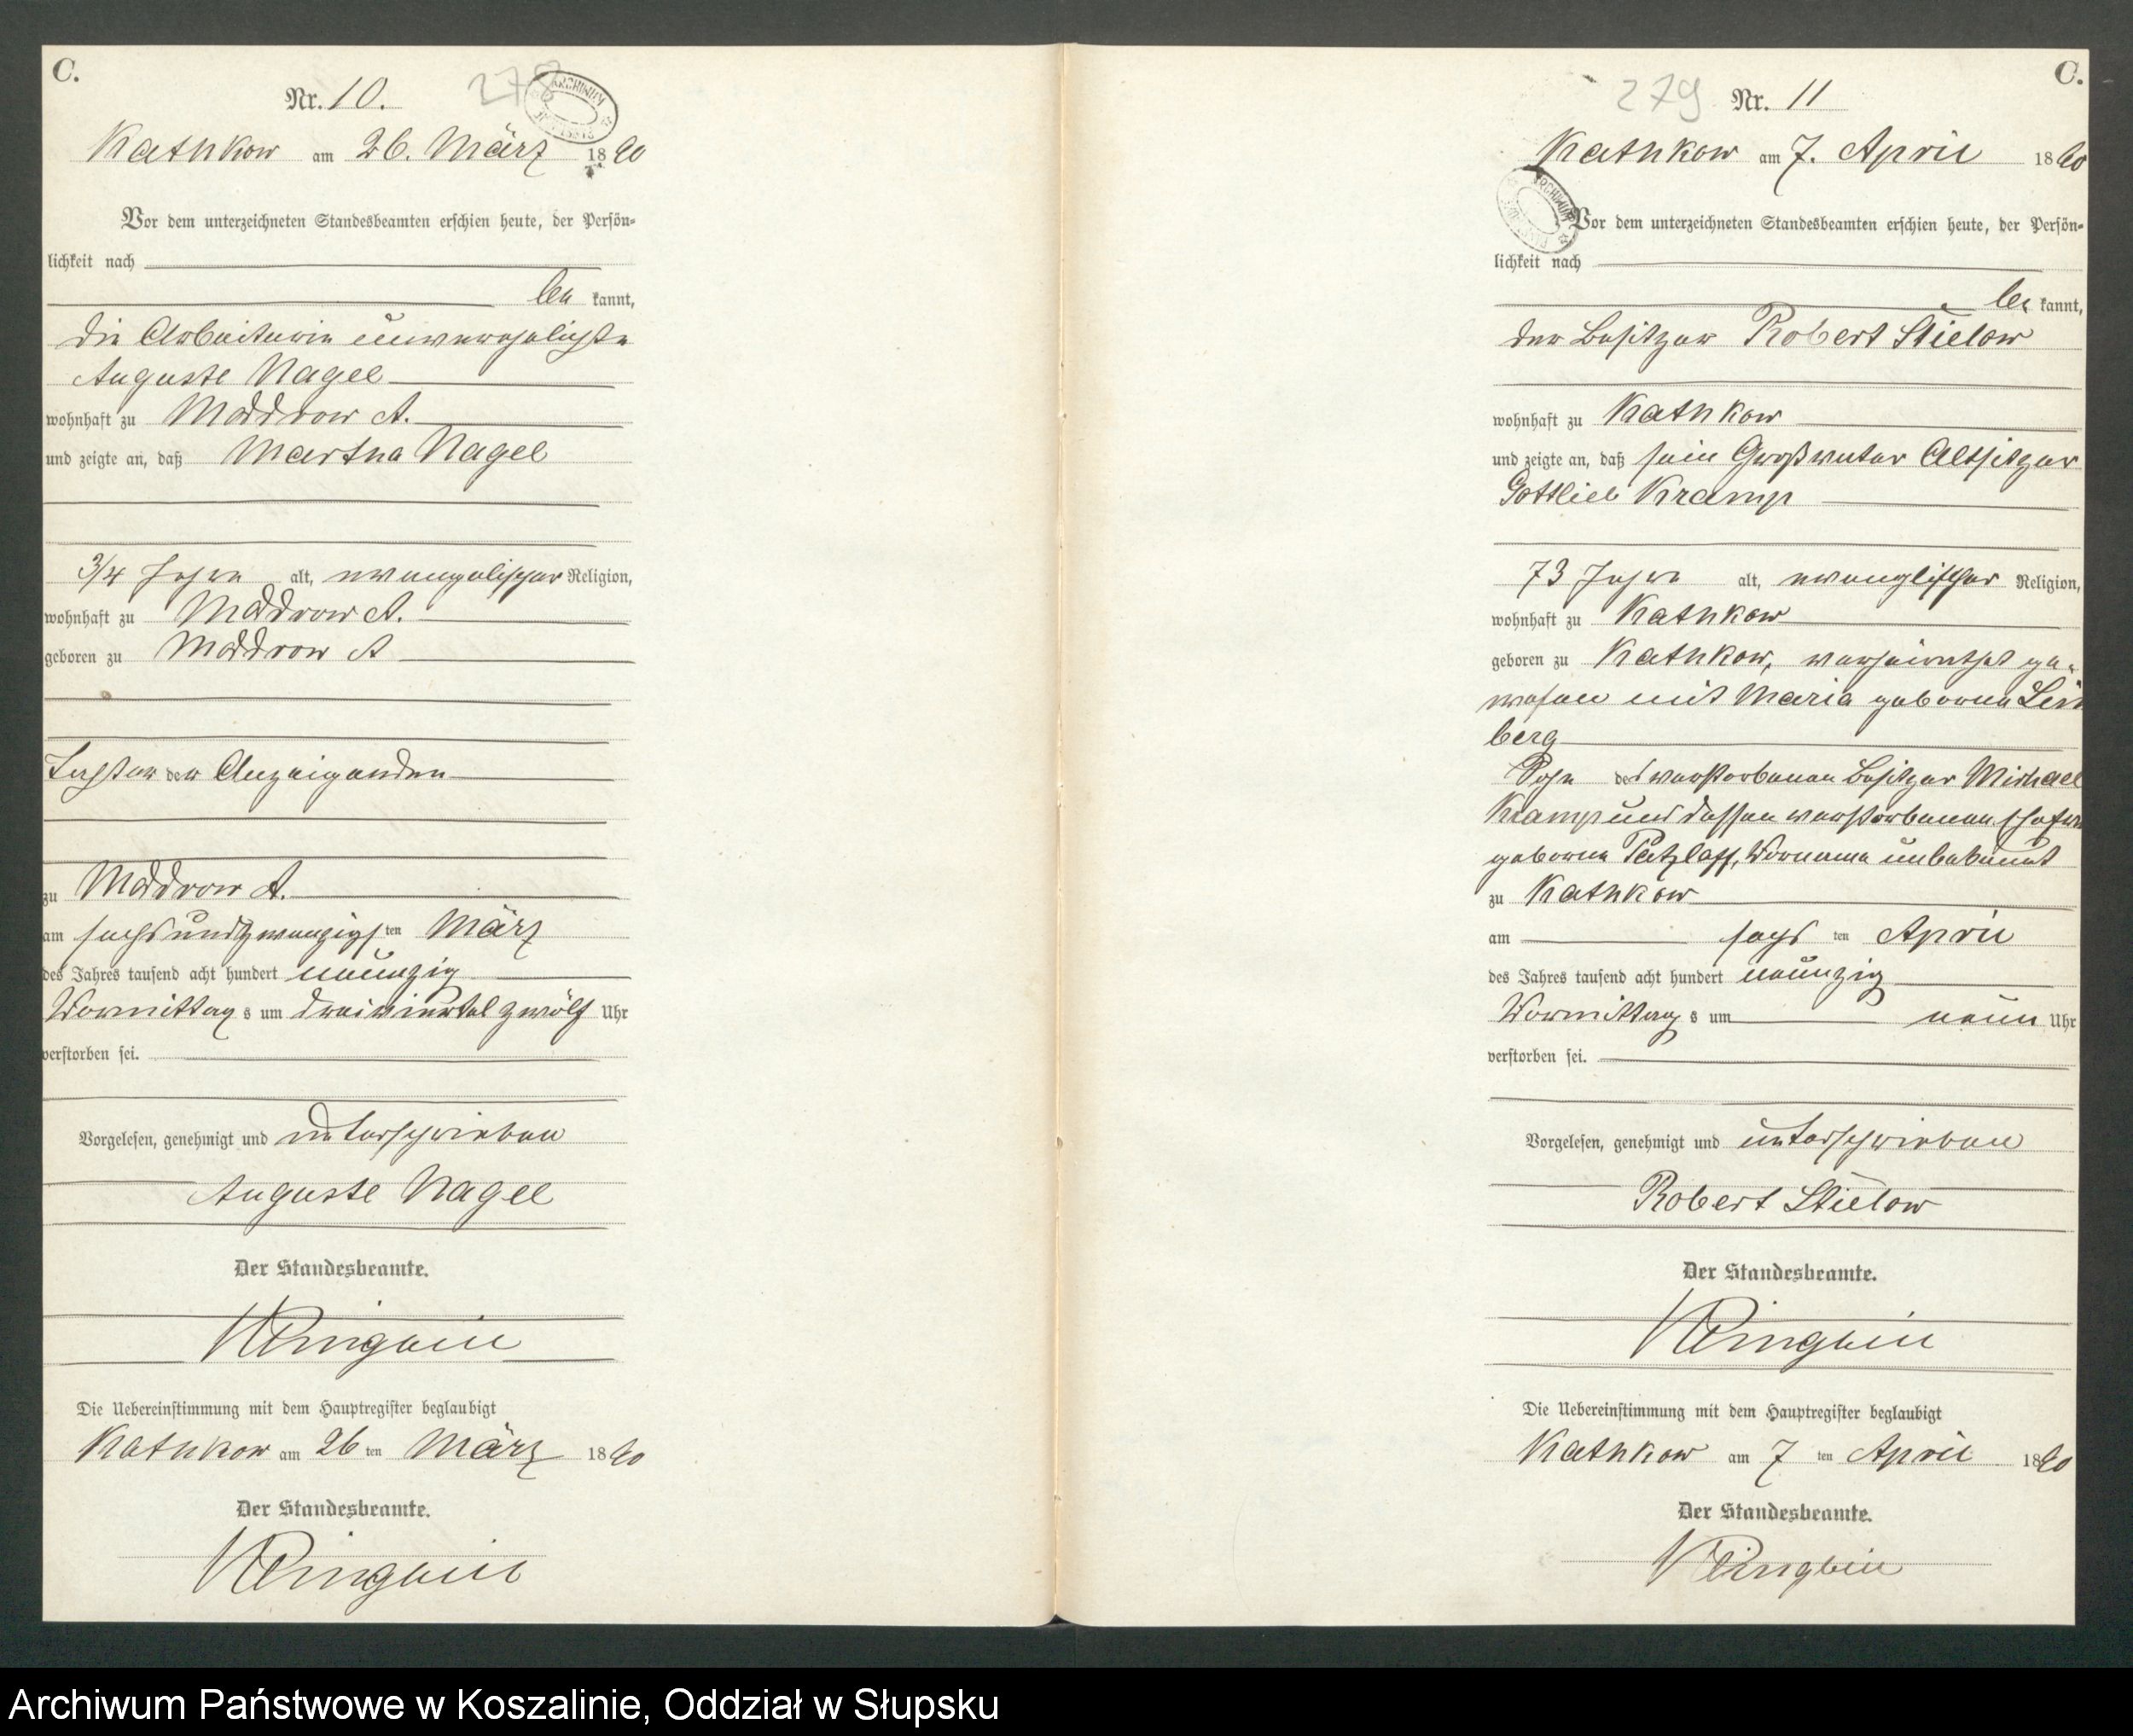 C.
Nr. 10.
278
Kathkow am 26. März 1890
Vor dem unterzeichneten Standesbeamten erschien heute, der Persön-
lichkeit nach
be kannt,
die Arbeiterin unverehelichte
Auguste Nagel
wohnhaft zu Moddrow A.
und zeigte an, daß Martha Nagel
3/4 Jahre alt, evangelischer Religion,
wohnhaft zu Moddrow A.
geboren zu Moddrow A
Tochter der Anzeigenden
zu Moddrow A.
am sechsundzwanzigsten März
des Jahres tausend acht hundert neunzig
Vormittags um dreiviertel zwölf Uhr
verstorben sei.
Vorgelesen, genehmigt und unterschrieben
Auguste Nagel
Der Standesbeamte.
Die Uebereinstimmung mit dem Hauptregister beglaubigt
Kathkow am 26 ten März 1890
Der Standesbeamte.
C.
279 Nr. 11
Kathkow am 7. April 1890
Vor dem unterzeichneten Standesbeamten erschien heute, der Persön-
lichkeit nach
be kannt,
der Besitzer Robert Stielow
wohnhaft zu Kathkow
und zeigte an, daß sein Großvater Altsitzer
Gottlieb Kramp
73 Jahre alt, evanglischer Religion,
wohnhaft zu Kathkow
geboren zu Kathkow, verheirathet ge-
wesen mit Maria geborene
berg
Sohn des verstorbenen Besitzer Michael
Kramp und dessen verstorbenen Ehefrau
geborene Patzlaff, Vorname unbekannt
zu Kathkow
am sechs ten April
des Jahres tausend acht hundert neunzig
Vormittags um neun Uhr
verstorben sei.
Vorgelesen, genehmigt und unterschrieben
Robert Stielow
Der Standesbeamte.
Die Uebereinstimmung mit dem Hauptregister beglaubigt
Kathkow am 7 ten April 1890
Der Standesbeamte.
Archiwum Państwowe w Koszalinie, Oddział w Słupsku